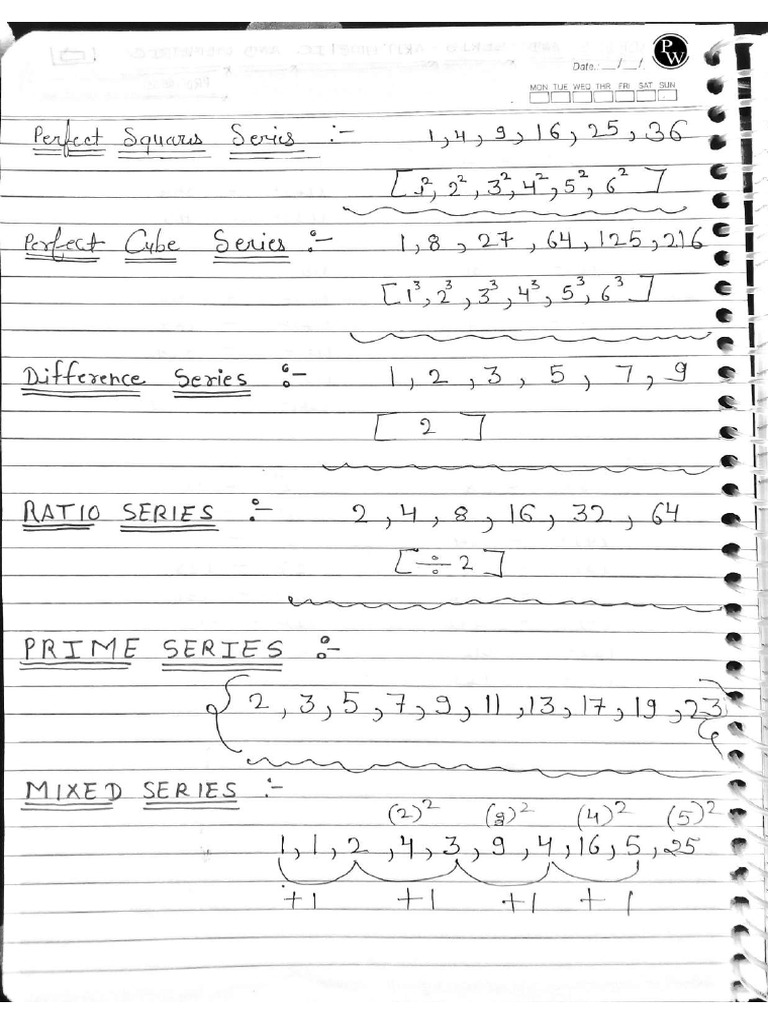 PW
Date.:__/__/
MON TUE WED THR FRI SAT SUN
Perfect Squaris Series :- 1, 4, 9, 16, 25, 36
[1², 2², 3², 4², 5², 6²]
Perfect Cube Series :- 1, 8, 27, 64, 125, 216
[1³, 2³, 3³, 4³, 5³, 6³]
Difference Series :- 1, 2, 3, 5, 7, 9
[ 2 ]
RATIO SERIES :- 2, 4, 8, 16, 32, 64
[÷ 2]
PRIME SERIES :-
{2, 3, 5, 7, 9, 11, 13, 17, 19, 23}
MIXED SERIES :-
(2)² (3)² (4)² (5)²
1, 1, 2, 4, 3, 9, 4, 16, 5, 25
+1 +1 +1 +1